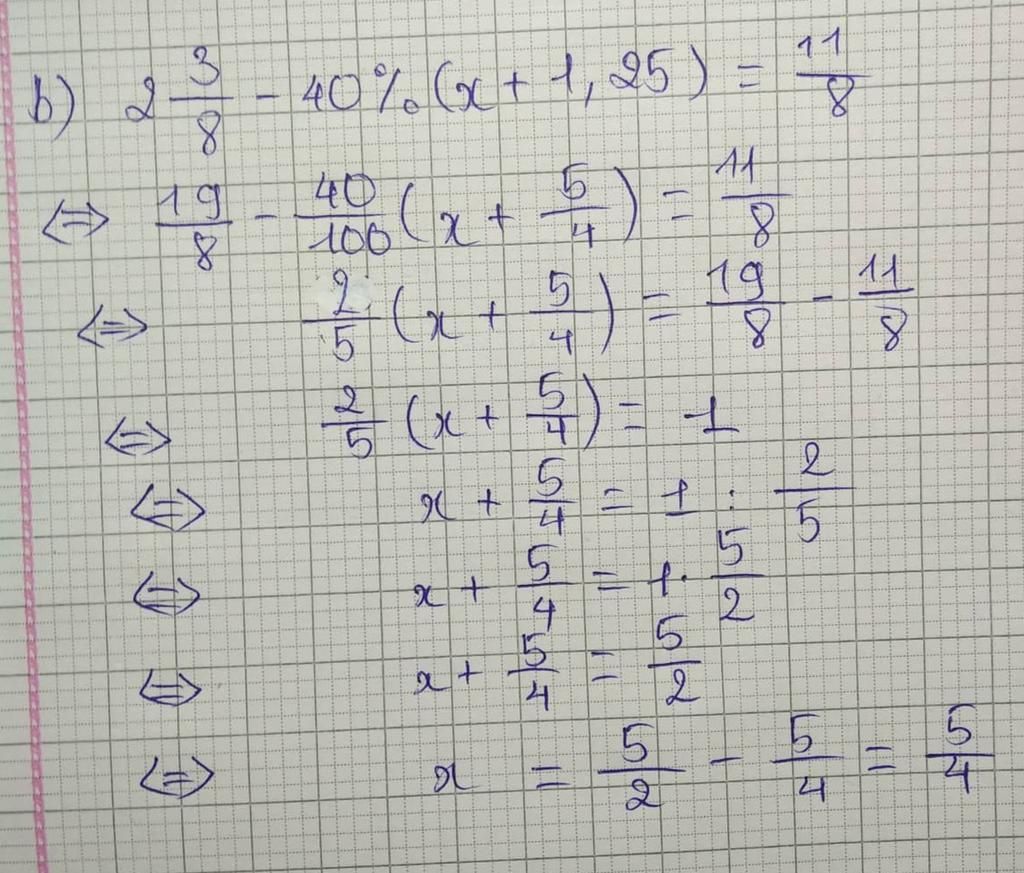 b) 2 3/8 - 40% (x + 1,25) = 11/8
⇔ 19/8 - 40/100 (x + 5/4) = 11/8
⇔ 2/5 (x + 5/4) = 19/8 - 11/8
⇔ 2/5 (x + 5/4) = 1
⇔ x + 5/4 = 1 : 2/5
⇔ x + 5/4 = 1 · 5/2
⇔ x + 5/4 = 5/2
⇔ x = 5/2 - 5/4 = 5/4